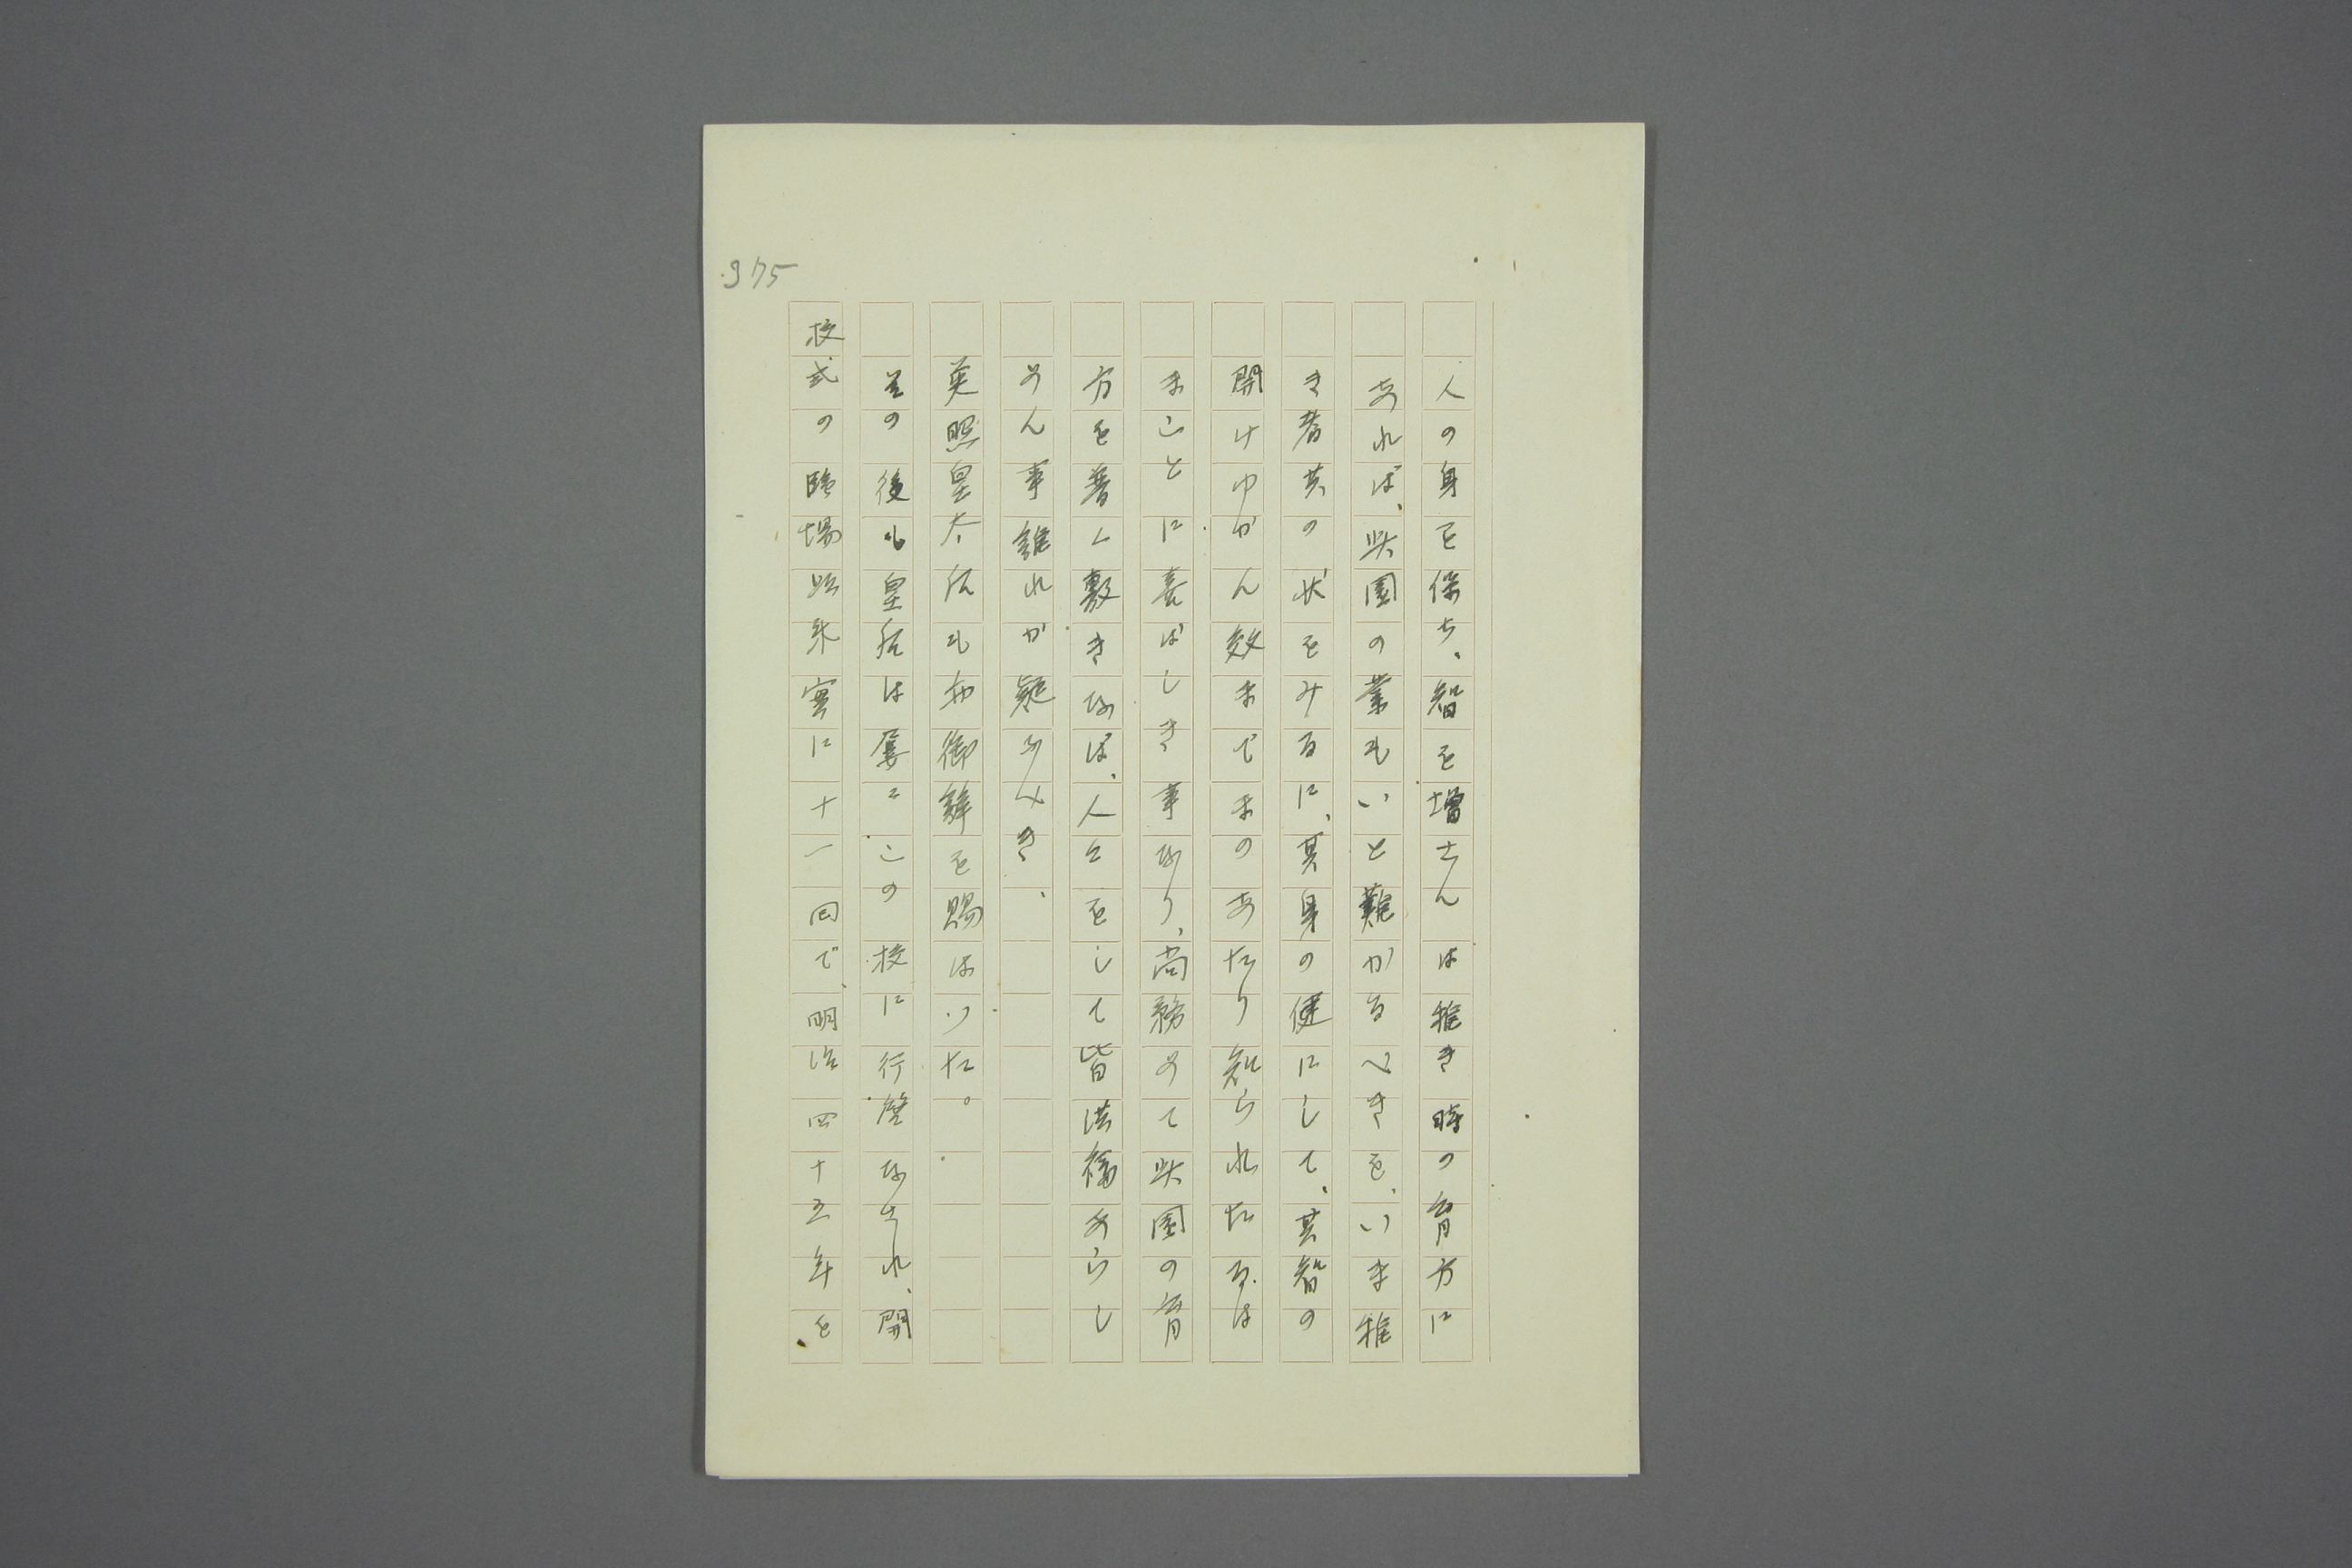 人の身を保ち、智を増さんは稚き時の育方に
あれば、此園の業もいと難かるべきを、いま稚
き者共の状をみるに、其身の健にして、其智の
開けゆかん効までまのあたり知られたるは
まことに喜ばしき事なり、尚務めて此園の育
方を普く敷きなば、人々をして皆洪福あらし
めん事誰れか疑ふべき、
英照皇太后も亦御辞を賜はつた。
その後も皇后は屡々この校に行啓なされ、開
校式の臨場以来実に十一回で、明治四十五年を
375